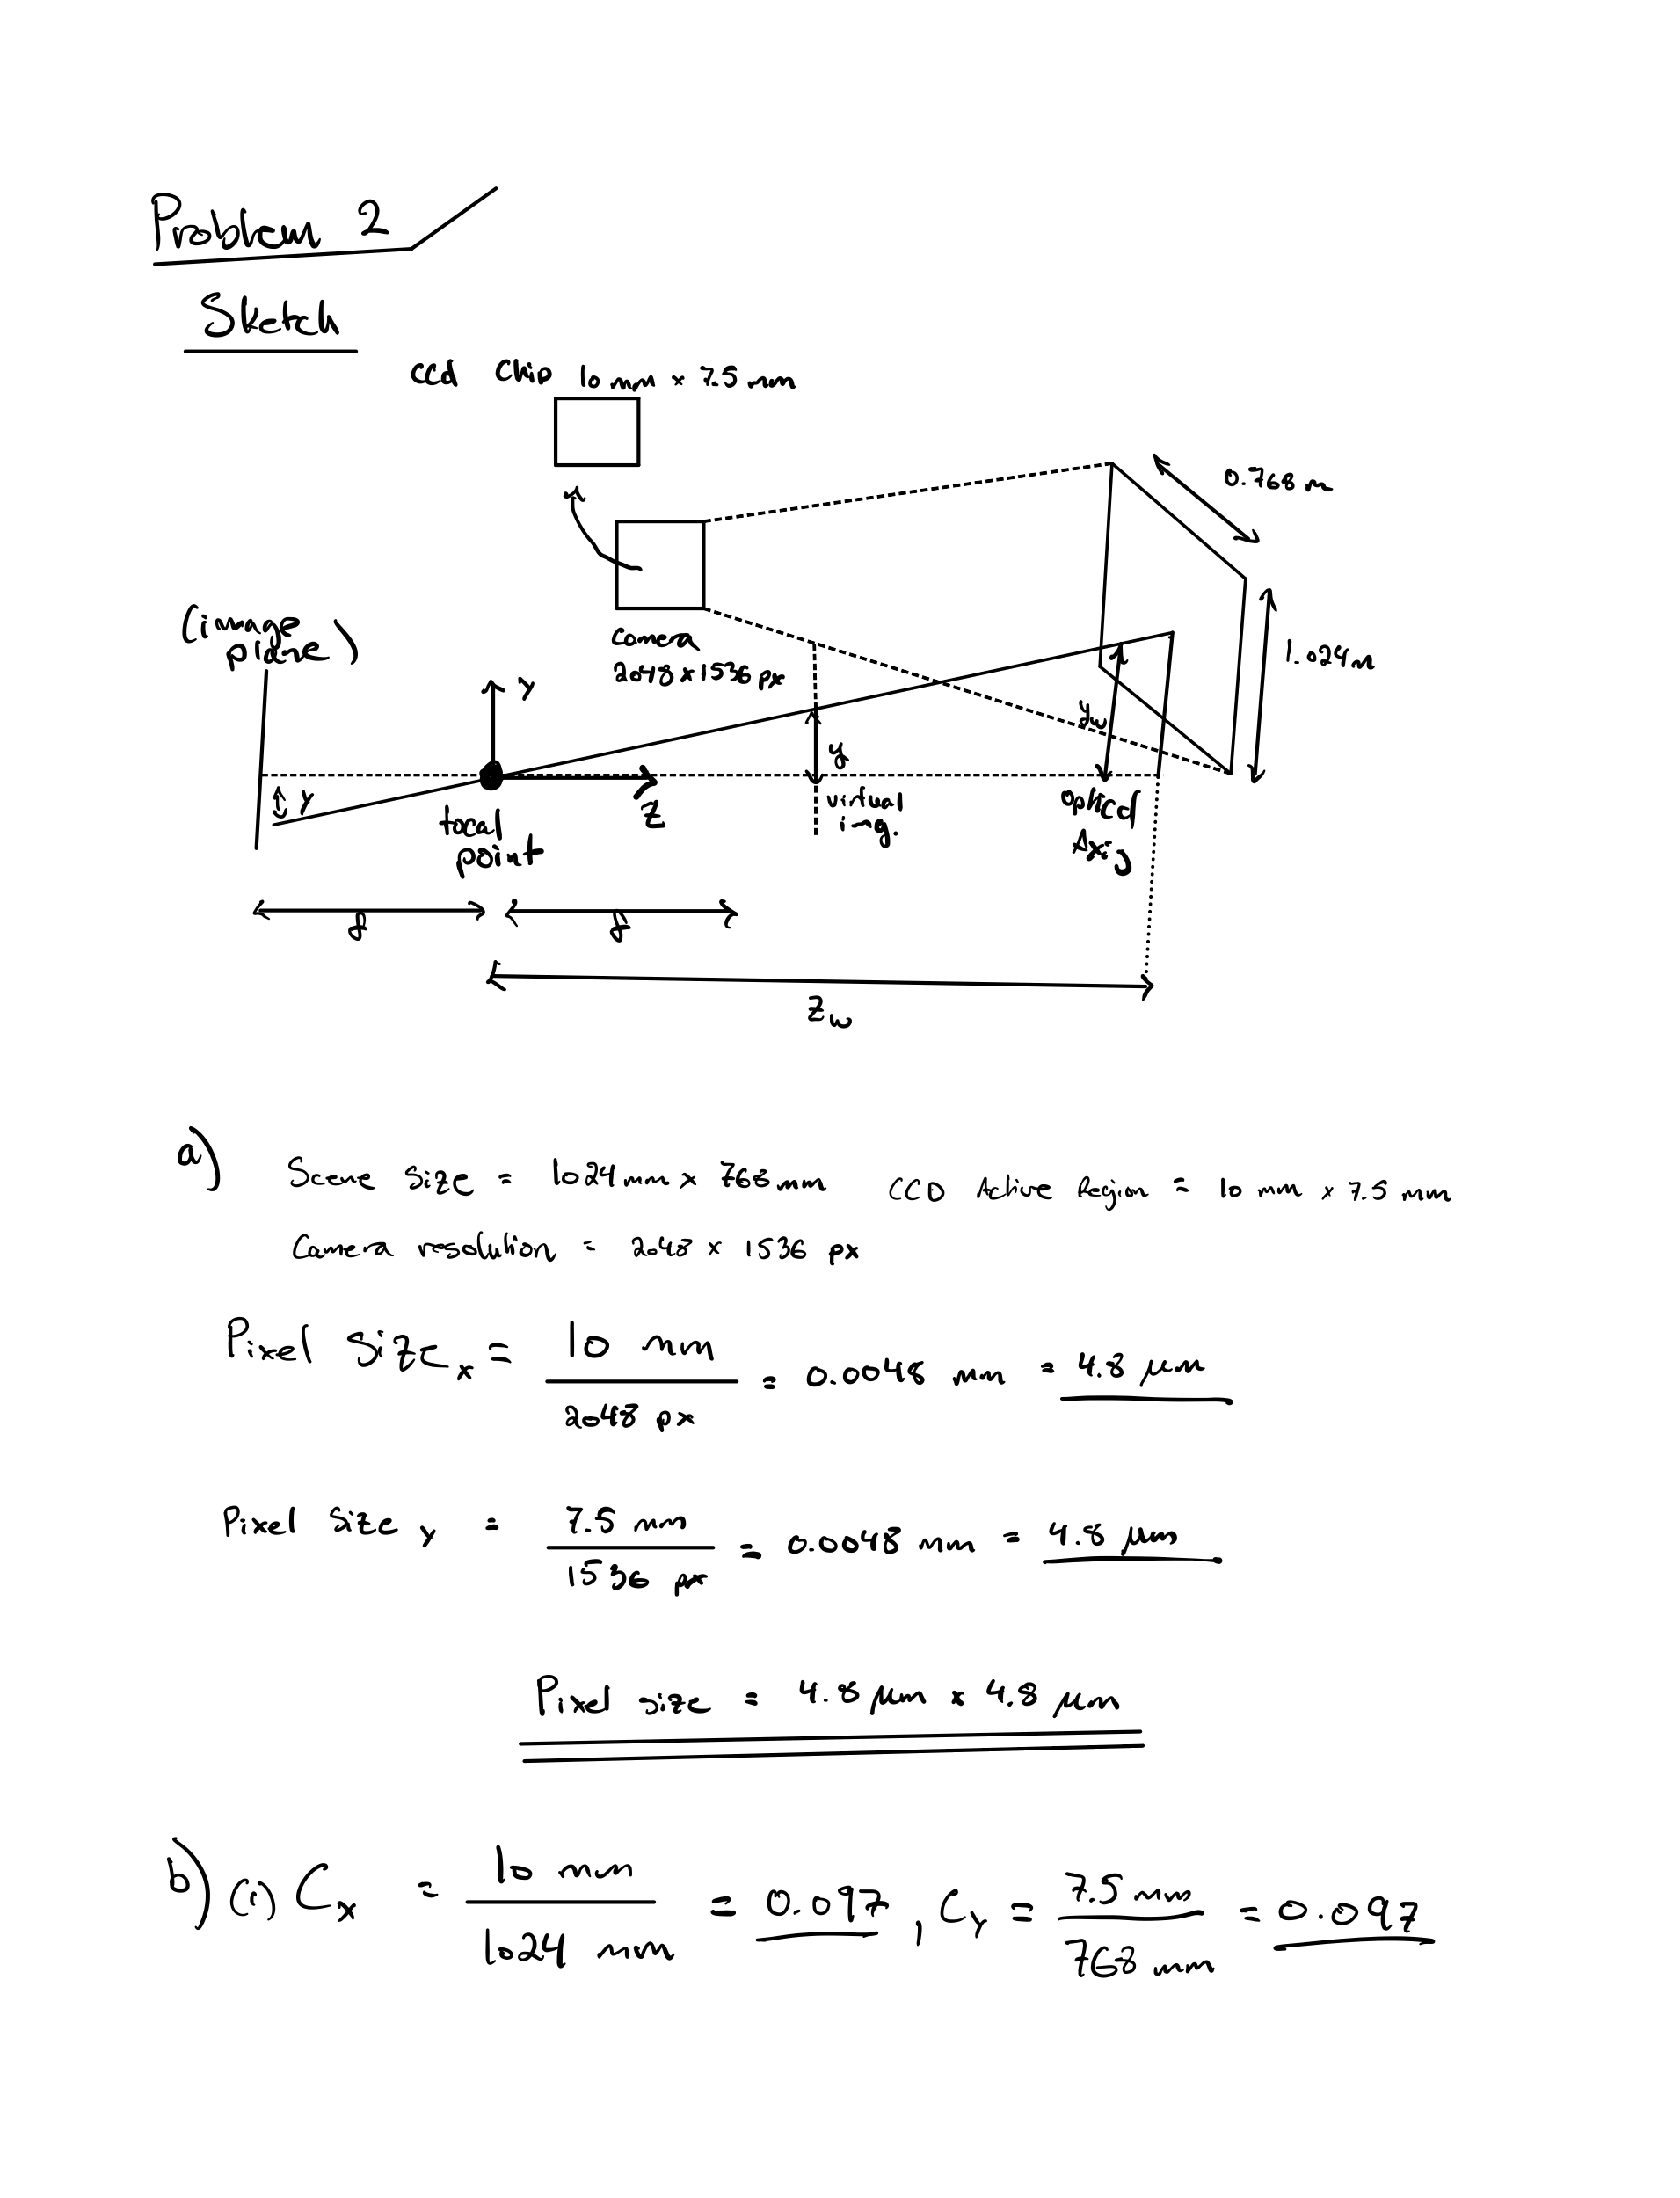 Problem 2
Sketch
ccd chip 10 mm × 7.5 mm
0.768 m
(image plane)
camera
2048 × 1536 px
1.024 m
y
yw
y
y
z
focal point
virtual img.
optical Axis
f
f
zw
a)
Scene Size = 1024 mm × 768 mm CCD Active Region = 10 mm × 7.5 mm
Camera resolution = 2048 × 1536 px
Pixel Size x = 10 mm / 2048 px = 0.0048 mm = 4.8 μm
Pixel Size y = 7.5 mm / 1536 px = 0.0048 mm = 4.8 μm
Pixel size = 4.8 μm × 4.8 μm
b) (i) Cx = 10 mm / 1024 mm = 0.097 , Cy = 7.5 mm / 768 mm = 0.097